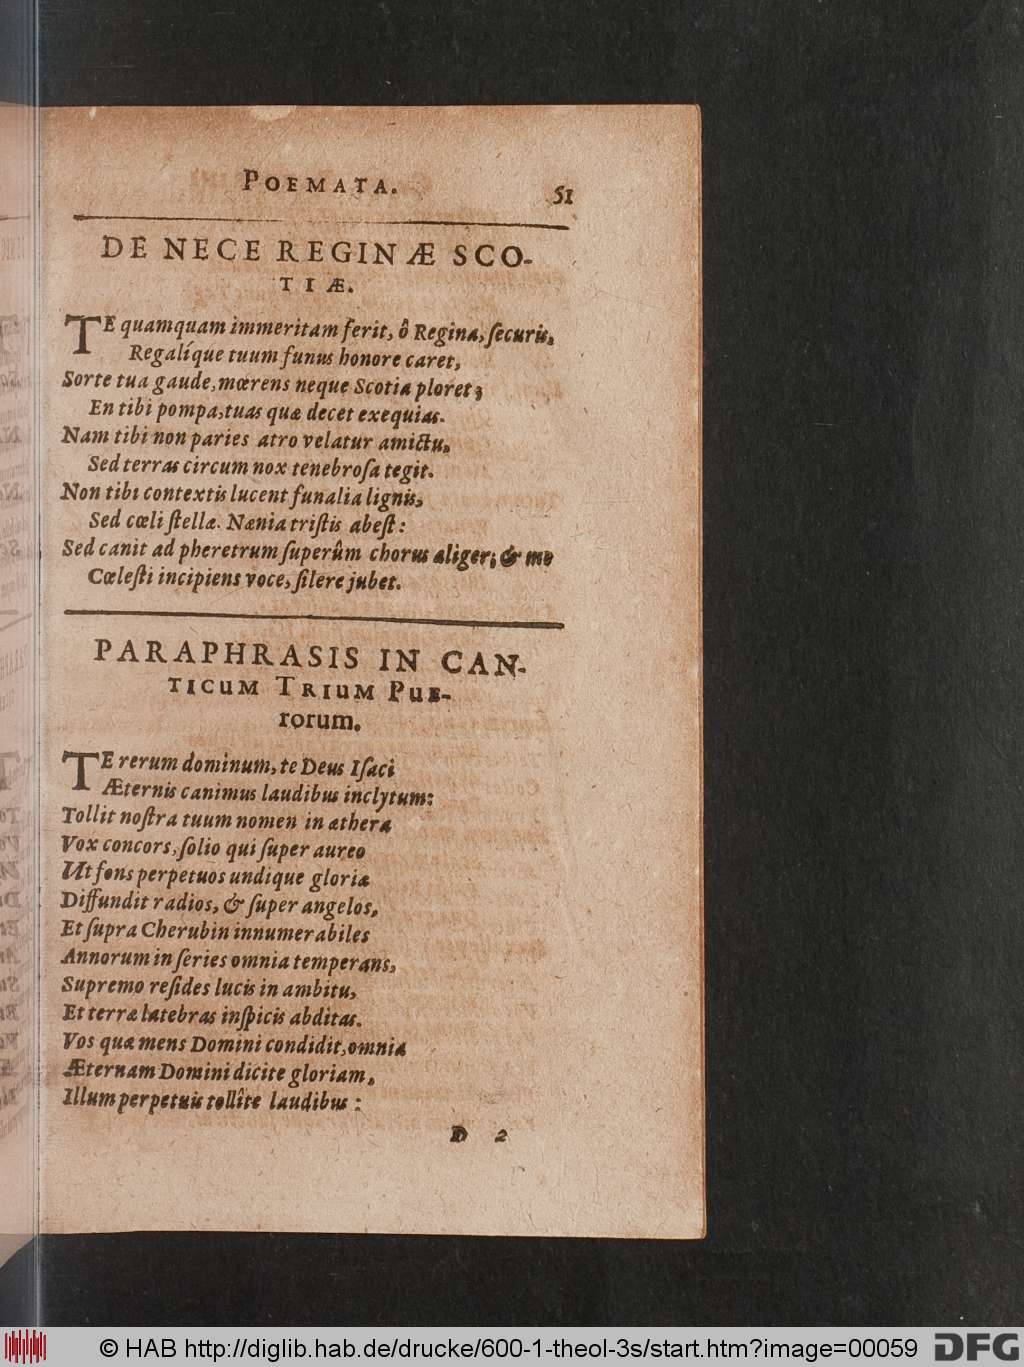 POEMATA. 51
DE NECE REGINÆ SCO-
TIÆ.
TE quamquam immeritam ferit, ô Regina, ſecuris,
Regalíque tuum funus honore caret,
Sorte tua gaude, mœrens neque Scotia ploret;
En tibi pompa, tuas quæ decet exequias.
Nam tibi non paries atro velatur amictu,
Sed terras circum nox tenebroſa tegit.
Non tibi contextis lucent funalia lignis,
Sed cœli ſtellæ. Nænia triſtis abeſt:
Sed canit ad pheretrum ſuperûm chorus aliger; & me
Cœleſti incipiens voce, ſilere jubet.
PARAPHRASIS IN CAN-
TICUM TRIUM PUE-
rorum.
TE rerum dominum, te Deus Iſaci
Æternis canimus laudibus inclytum:
Tollit noſtra tuum nomen in æthera
Vox concors, ſolio qui ſuper aureo
Ut fons perpetuos undique gloriæ
Diffundit radios, & ſuper angelos,
Et ſupra Cherubin innumerabiles
Annorum in ſeries omnia temperans,
Supremo reſides lucis in ambitu,
Et terræ latebras inſpicis abditas.
Vos quæ mens Domini condidit, omnia
Æternam Domini dicite gloriam,
Illum perpetuis tollîte laudibus:
D 2
© HAB http://diglib.hab.de/drucke/600-1-theol-3s/start.htm?image=00059 DFG